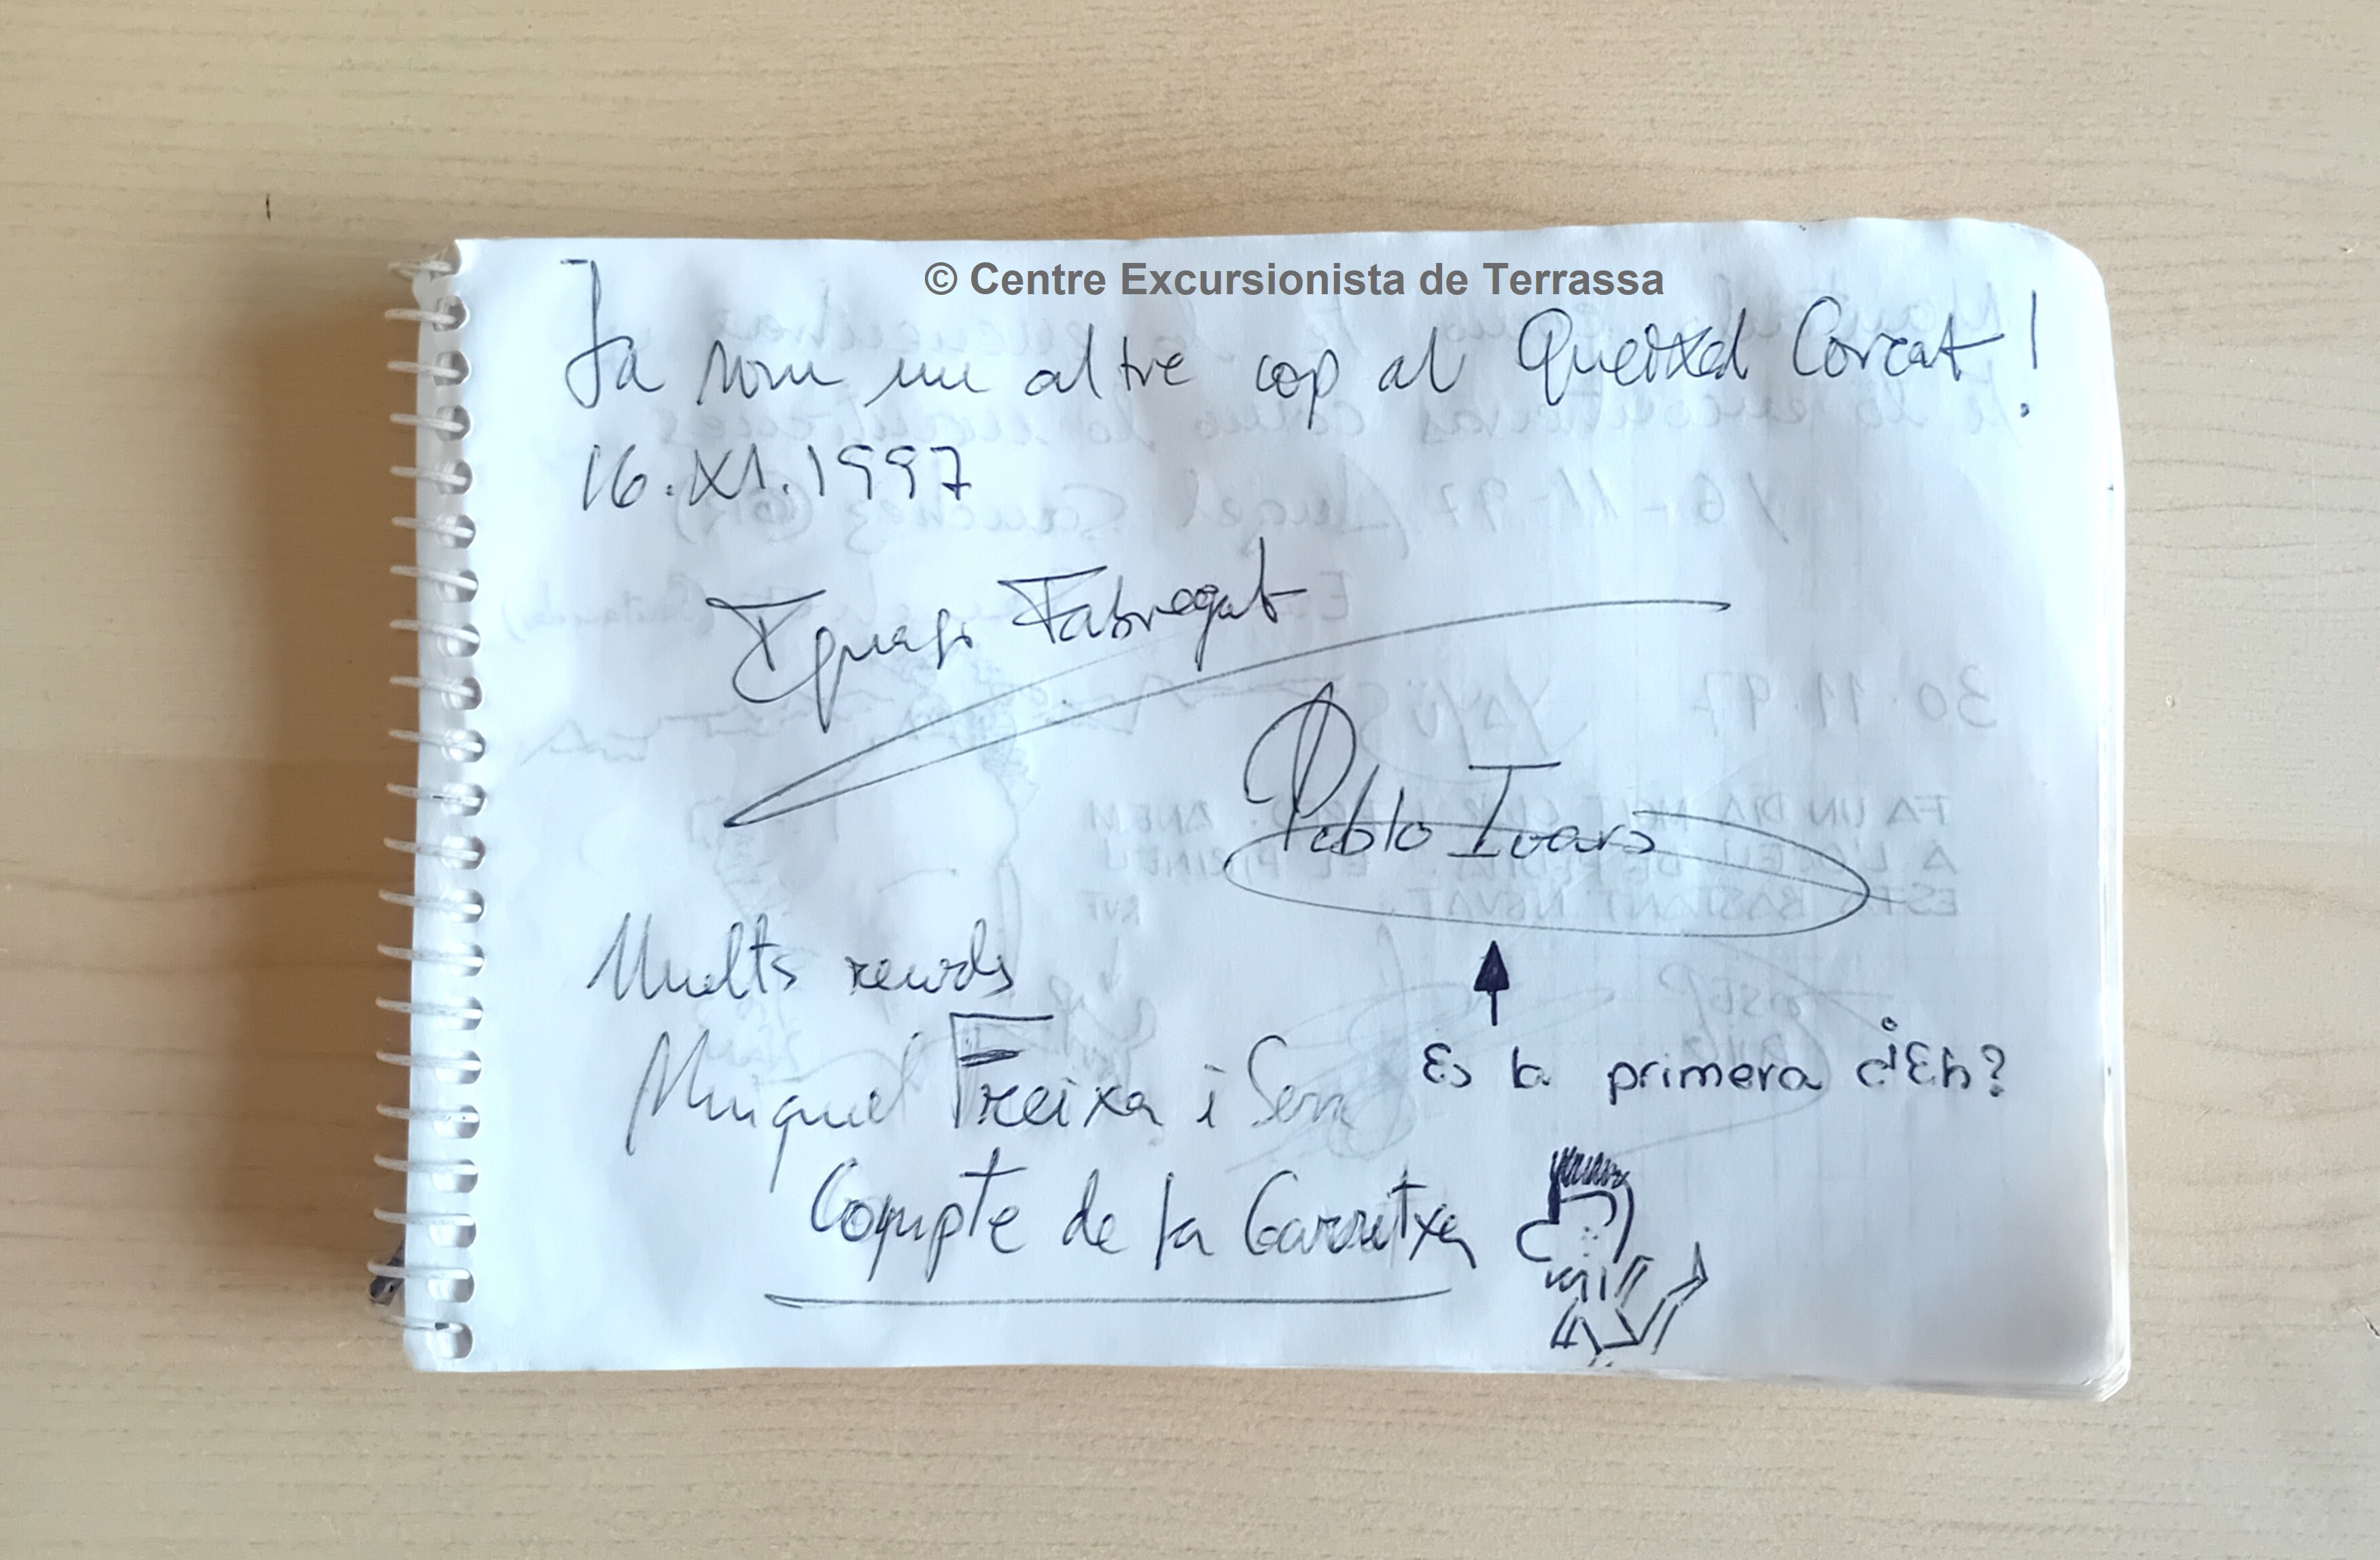 © Centre Excursionista de Terrassa
Ja som un altre cop al Queixal Corcat!
16.XI.1997
Ignasi Fabregat
Pablo Ivars
Molts records
Es la primera ¿Eh?
Miquel Freixa i Serra
Compte de la Garrotxa